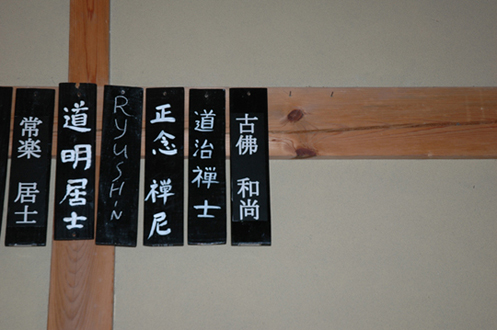 古佛 和尚
道治禅士
正念 禅尼
RYUSHiN
道明居士
常楽 居士